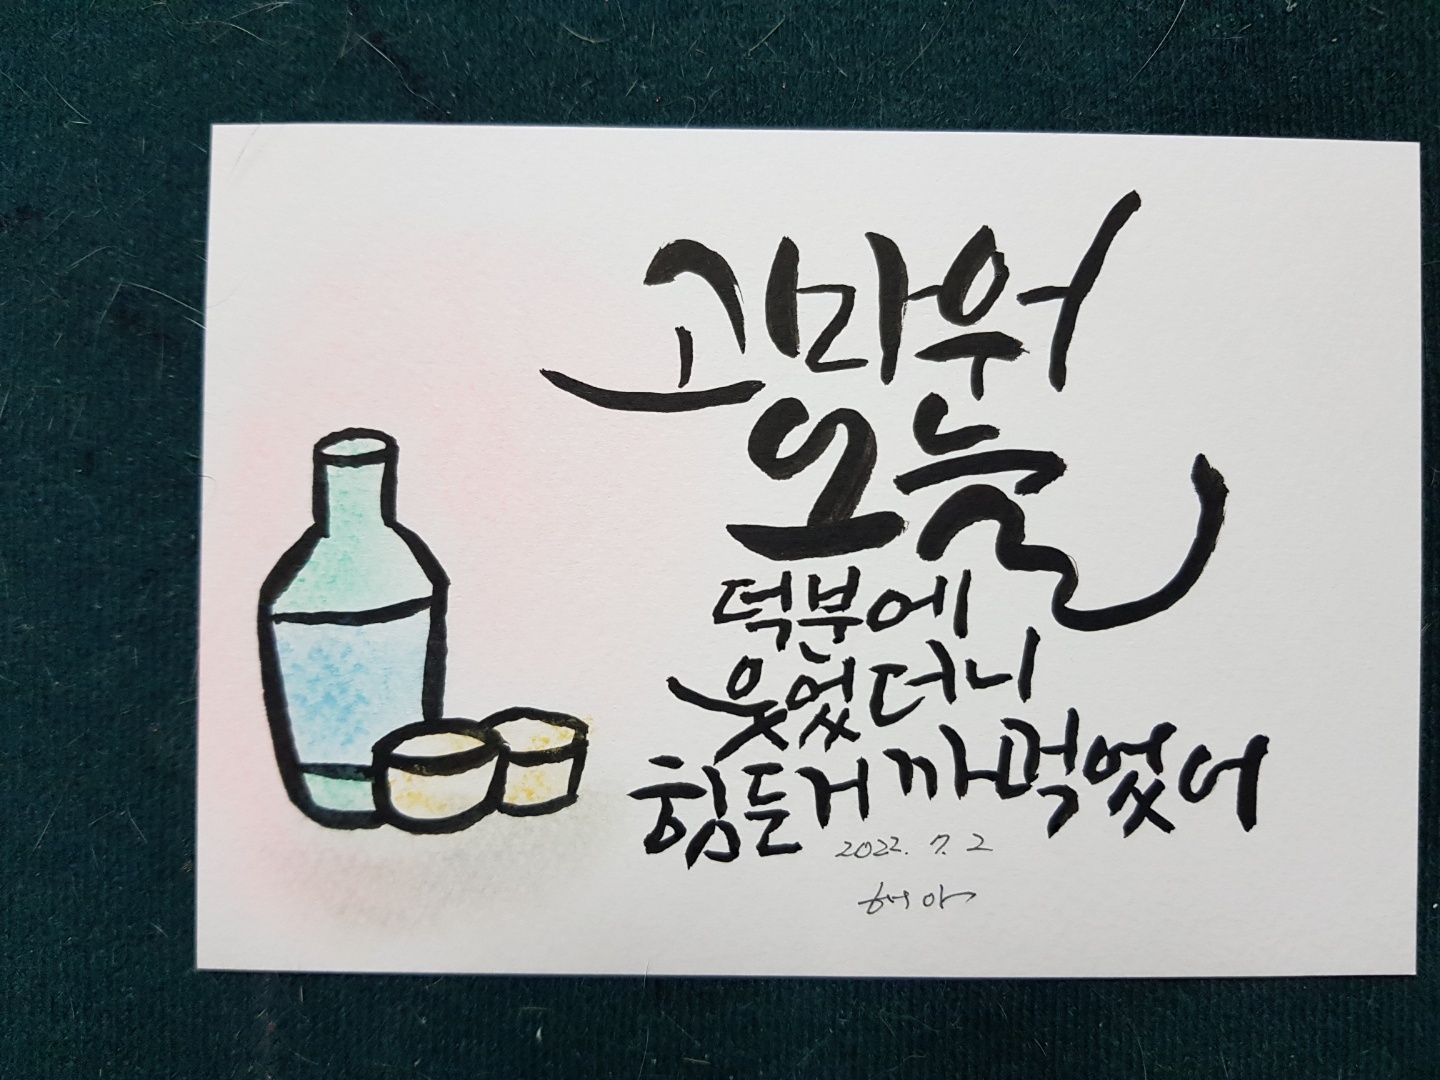 고마워
오늘
덕분에
웃었더니
힘든거 까먹었어
2022. 7. 2